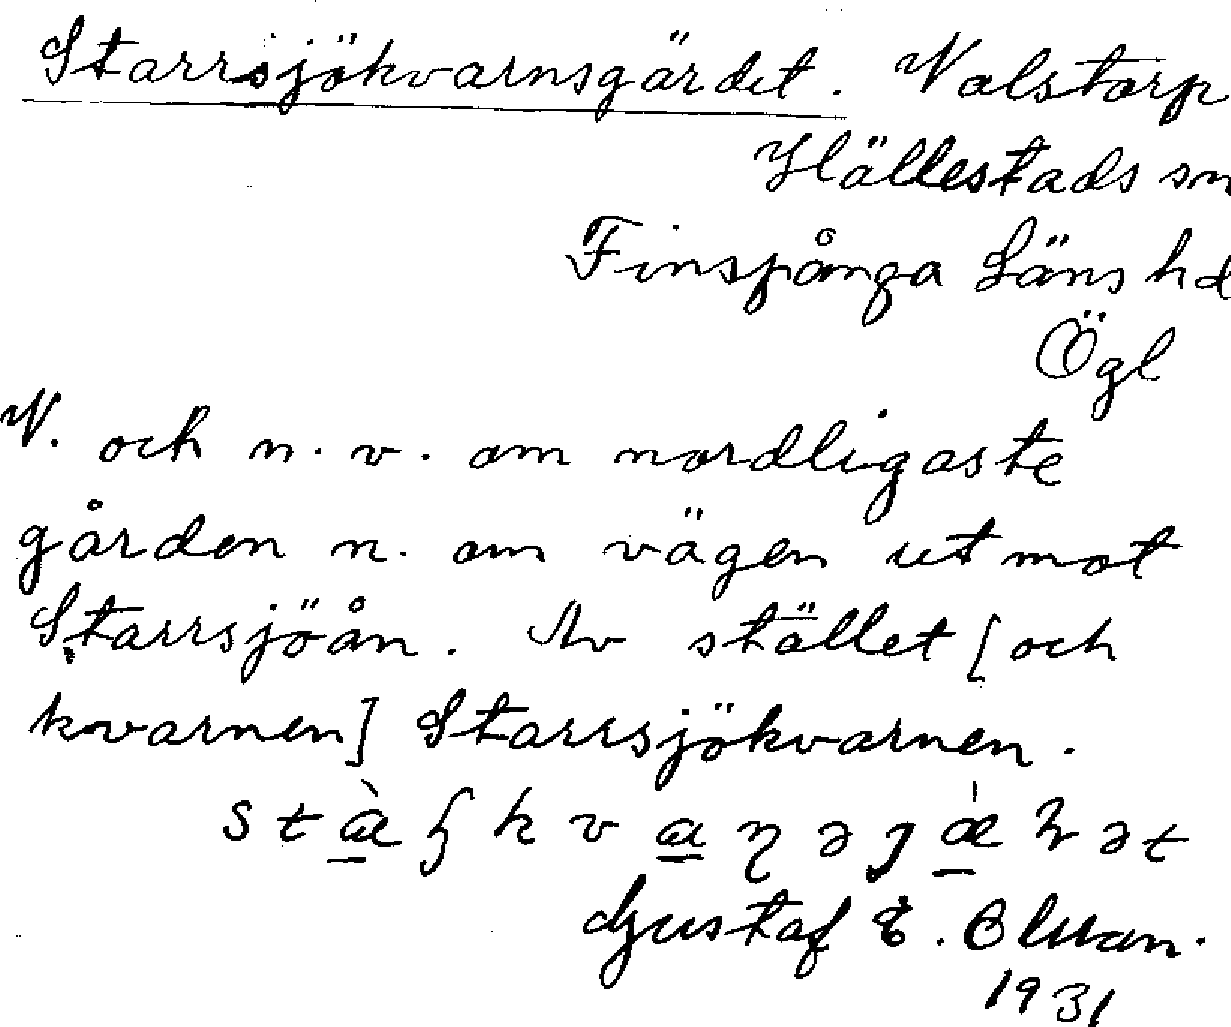 Starrsjökvarnsgärdet. Valstorp
Hällestads sn
Finspånga Läns hd
Ögl
N. och n. v. om nordligaste
gården n. om vägen ut mot
Starrsjöån. Av stället [och
kvarnen] Starrsjökvarnen.
Gustaf E.
1931